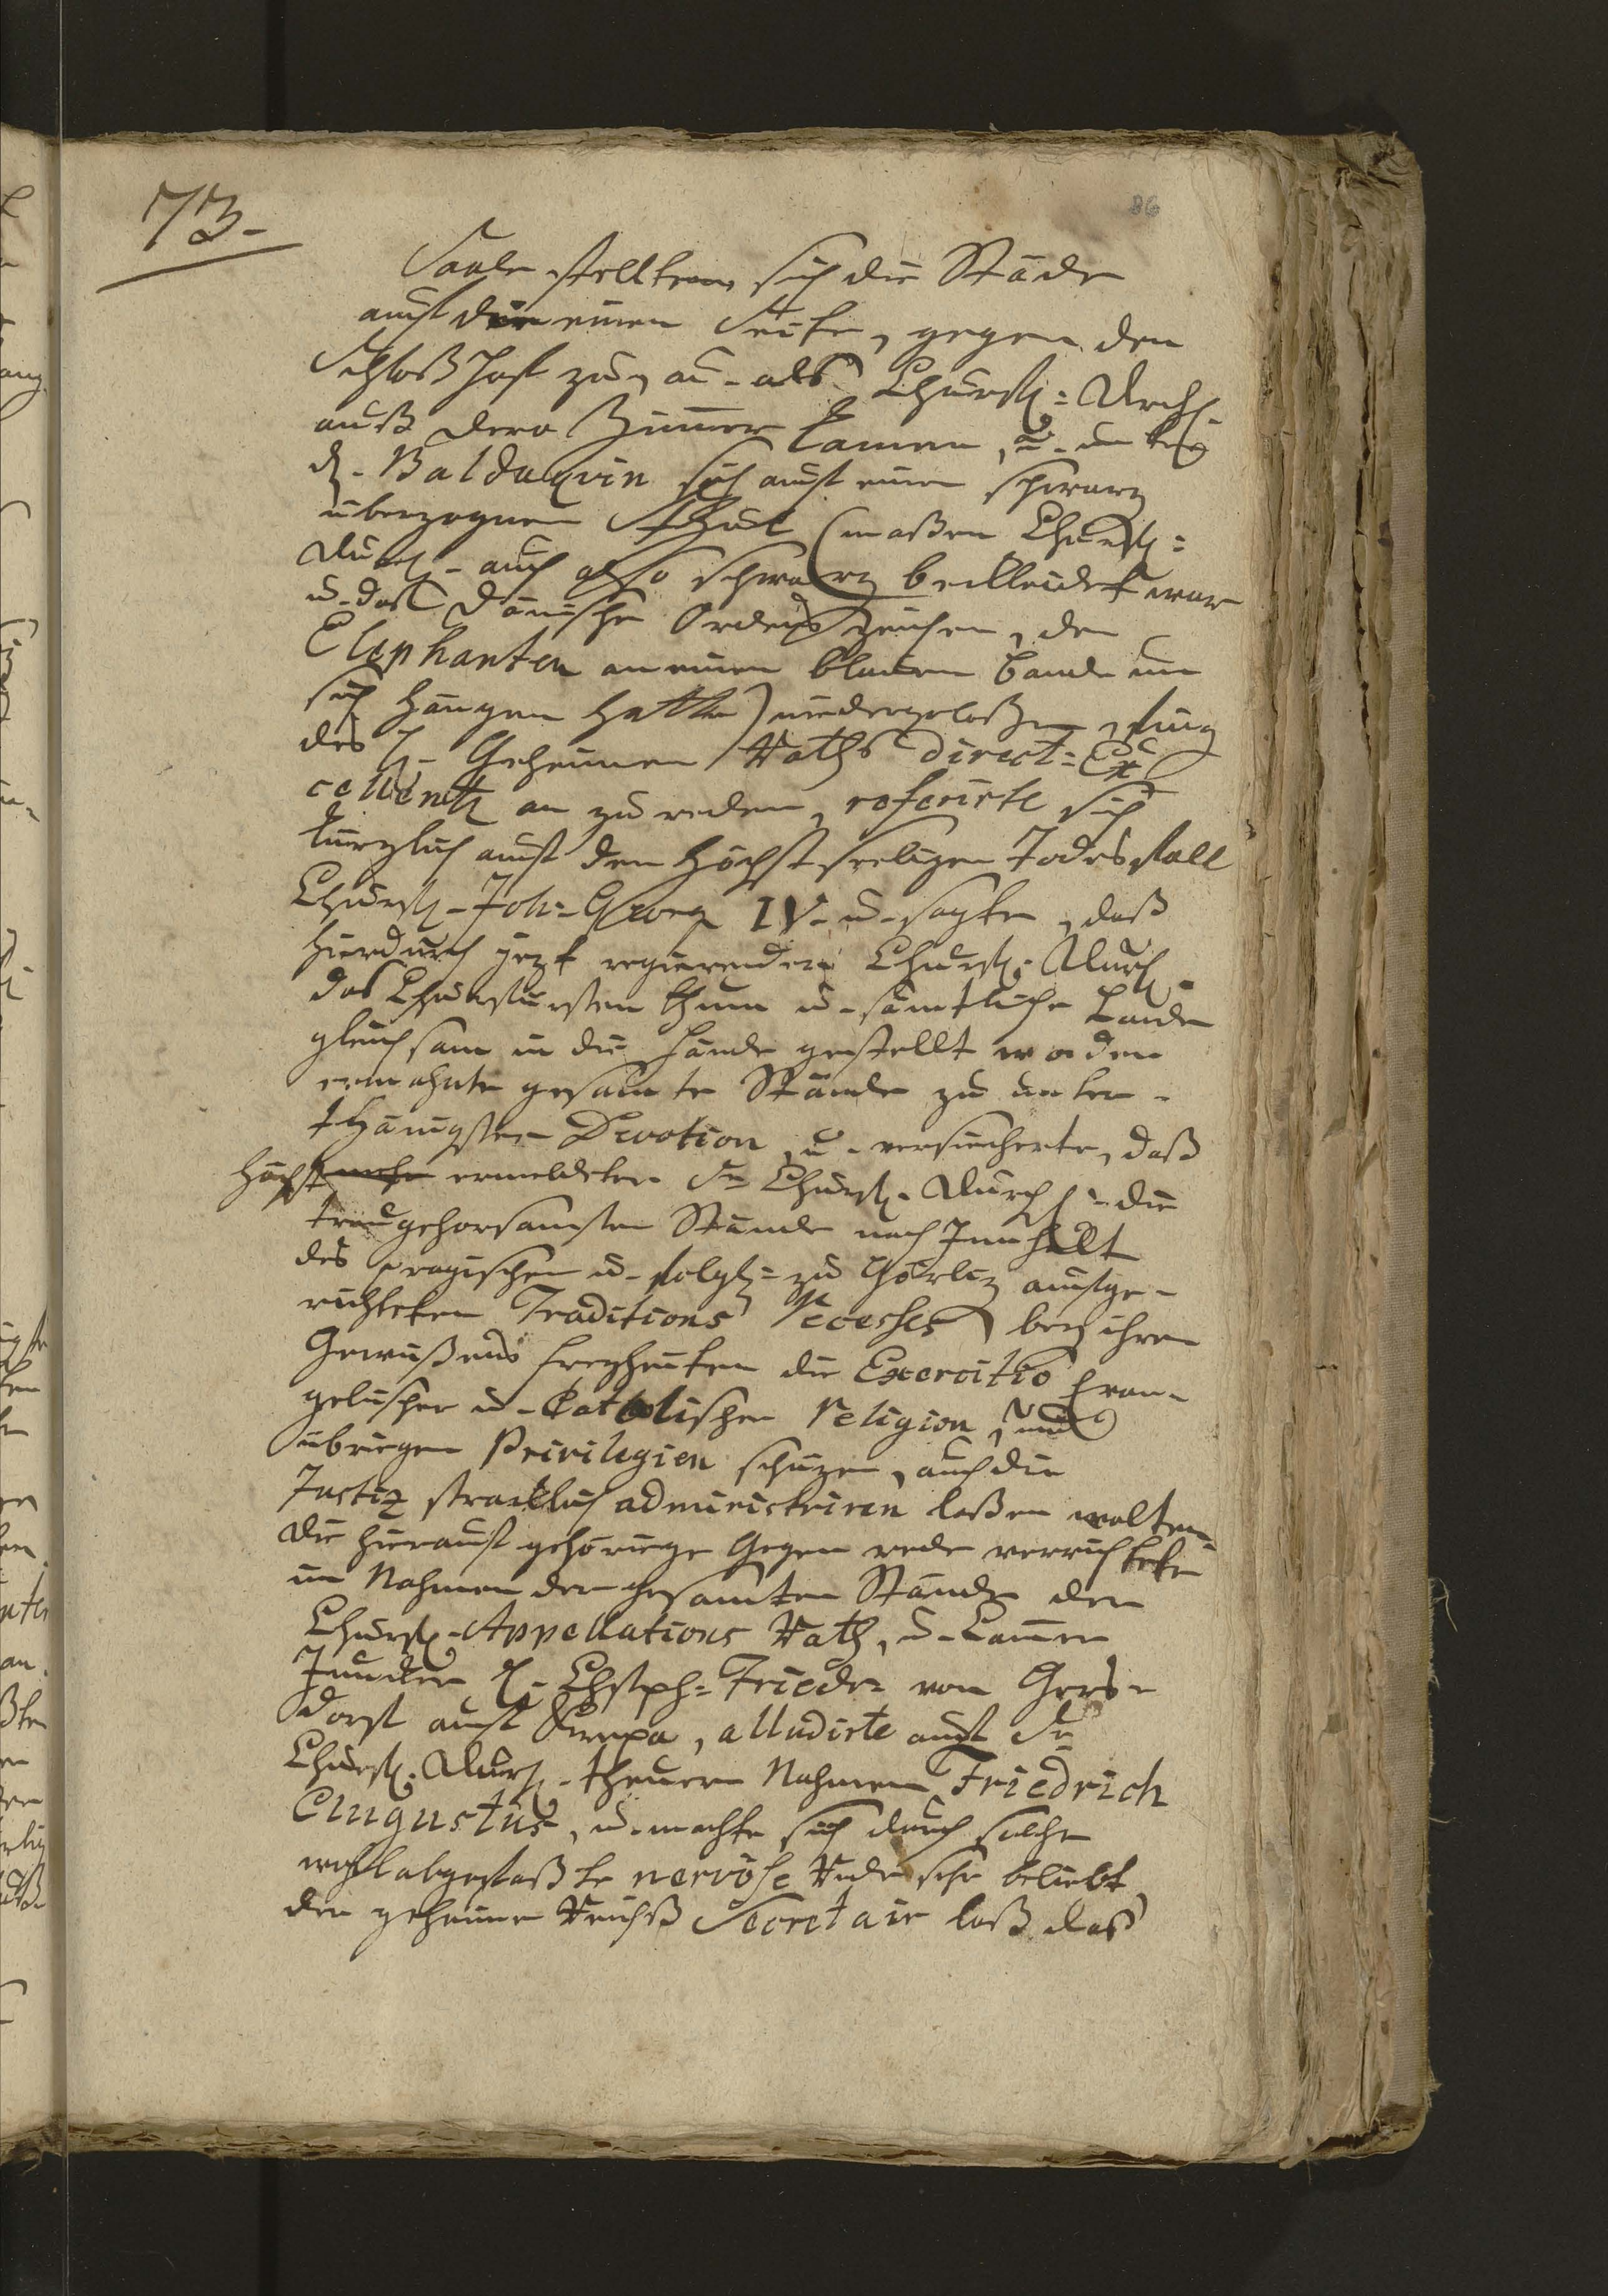 73.
86
Saale stellten sich die Städe
auf der einen Seite, gegen den
Schloß Hoff zu, an. als Churfl: Drchl.
auß dero Zimmer kamen, u. unter
d. Baldaqvin sich auf einen schwarz
uberzognen Stuhl (maßen Churfl:
Durchl. auch also schwarz bekleidet war
u. daß Dänische Ordens Zeichen, den
Elephanten an einen blauen bande um
sich hangen hatte) niedergelaßen, fing
des H. Geheimen Raths direct: Ex
cellentz an zu reden, referirte sich
kürzlich auf den Höchstseeligen Todes fall
Churfl. Joh: Georg IV. u. sagte, daß
hierdurch jezt regierender Churfl. Durchl.
das Churfürstenthum u. sämtliche Lande
gleichsam in die Hände gestellt worden
ermahnte gesamte Stände zu unter-
thänigster Devotion, u. versicherte, daß
Höchst ermeldeter Sr Churfl. Durchl. die
treugehorsamsten Stände nach Innhalt
des pragischen u. folgl: zu Görliz aufge-
richteten Traditions Recesses, bey ihren
Gewißens freyheiten die Exercitio Evan-
gelischer u. Catolischer Religion, und
übrigen Privilegien schüzen, auch die
Justiz stracklich administriren laßen wolten.
die hierauf gehörige Gegen rede verrichtete
im Nahmen der gesamten Stände der
Churfl. Appellations Rath, u. Cammer
Juncker H. Chstph: Friedr: von Gers-
dorf auf , alludirte auf Sr
Churfl. Durchl. theuern Nahmen Friedrich
Augustus, u. machte sich durch solche
wohlabgefaßte nervöse Rede sehr beliebt
der geheime Reichß Secretair laß das